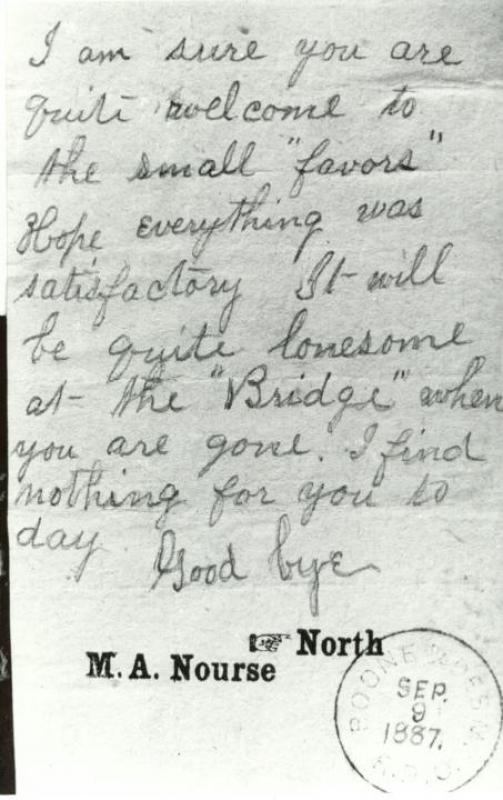 I am sure you are
quite welcome to
the small "favors"
Hope everything was
satisfactory It will
be quite lonesome
at the "Bridge" when
you are gone. I find
nothing for you to
day
Good bye
☞ North
M. A. Nourse
BOONE
SEP.
9
1887.
R.P.O.